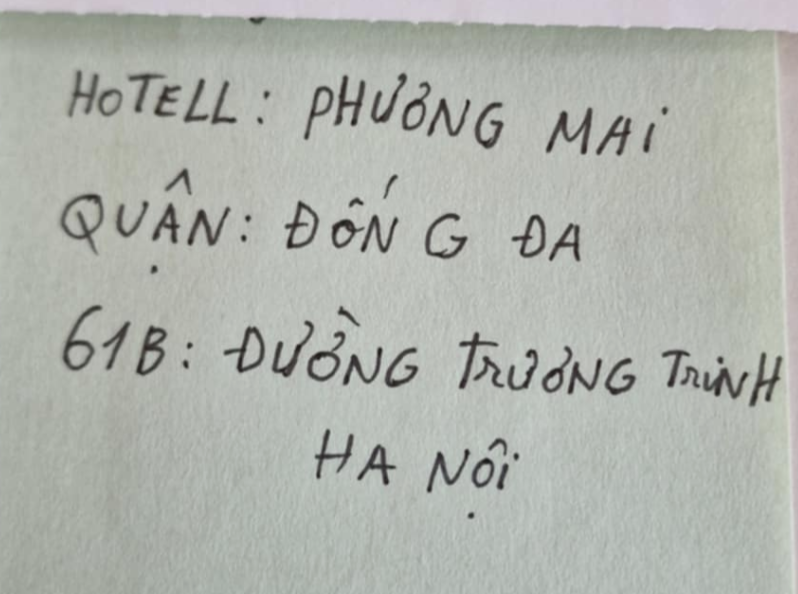 HOTELL: PHƯƠNG MAi
QUẬN: ĐỐNG ĐA
61B: ĐƯỜNG TRƯƠNG TRiNH
HA NỘi